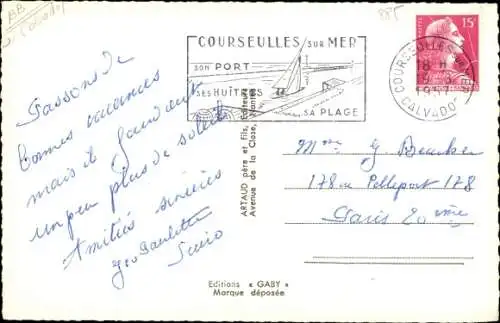 885
COURSEULLES SUR MER
SON PORT
SES HUÎTRES
SA PLAGE
COURSEULLES
18 H
1957
CALVADOS
15F
Passons de
bonnes vacances
mais il faudrait
un peu plus de soleil
Amitiés sincères
Geo Paulette
ARTAUD père et fils, Editeurs
Avenue de la Close, Nantes
Mme G.
178 rue Pelleport 178
Paris 20ème
Editions « GABY »
Marque déposée